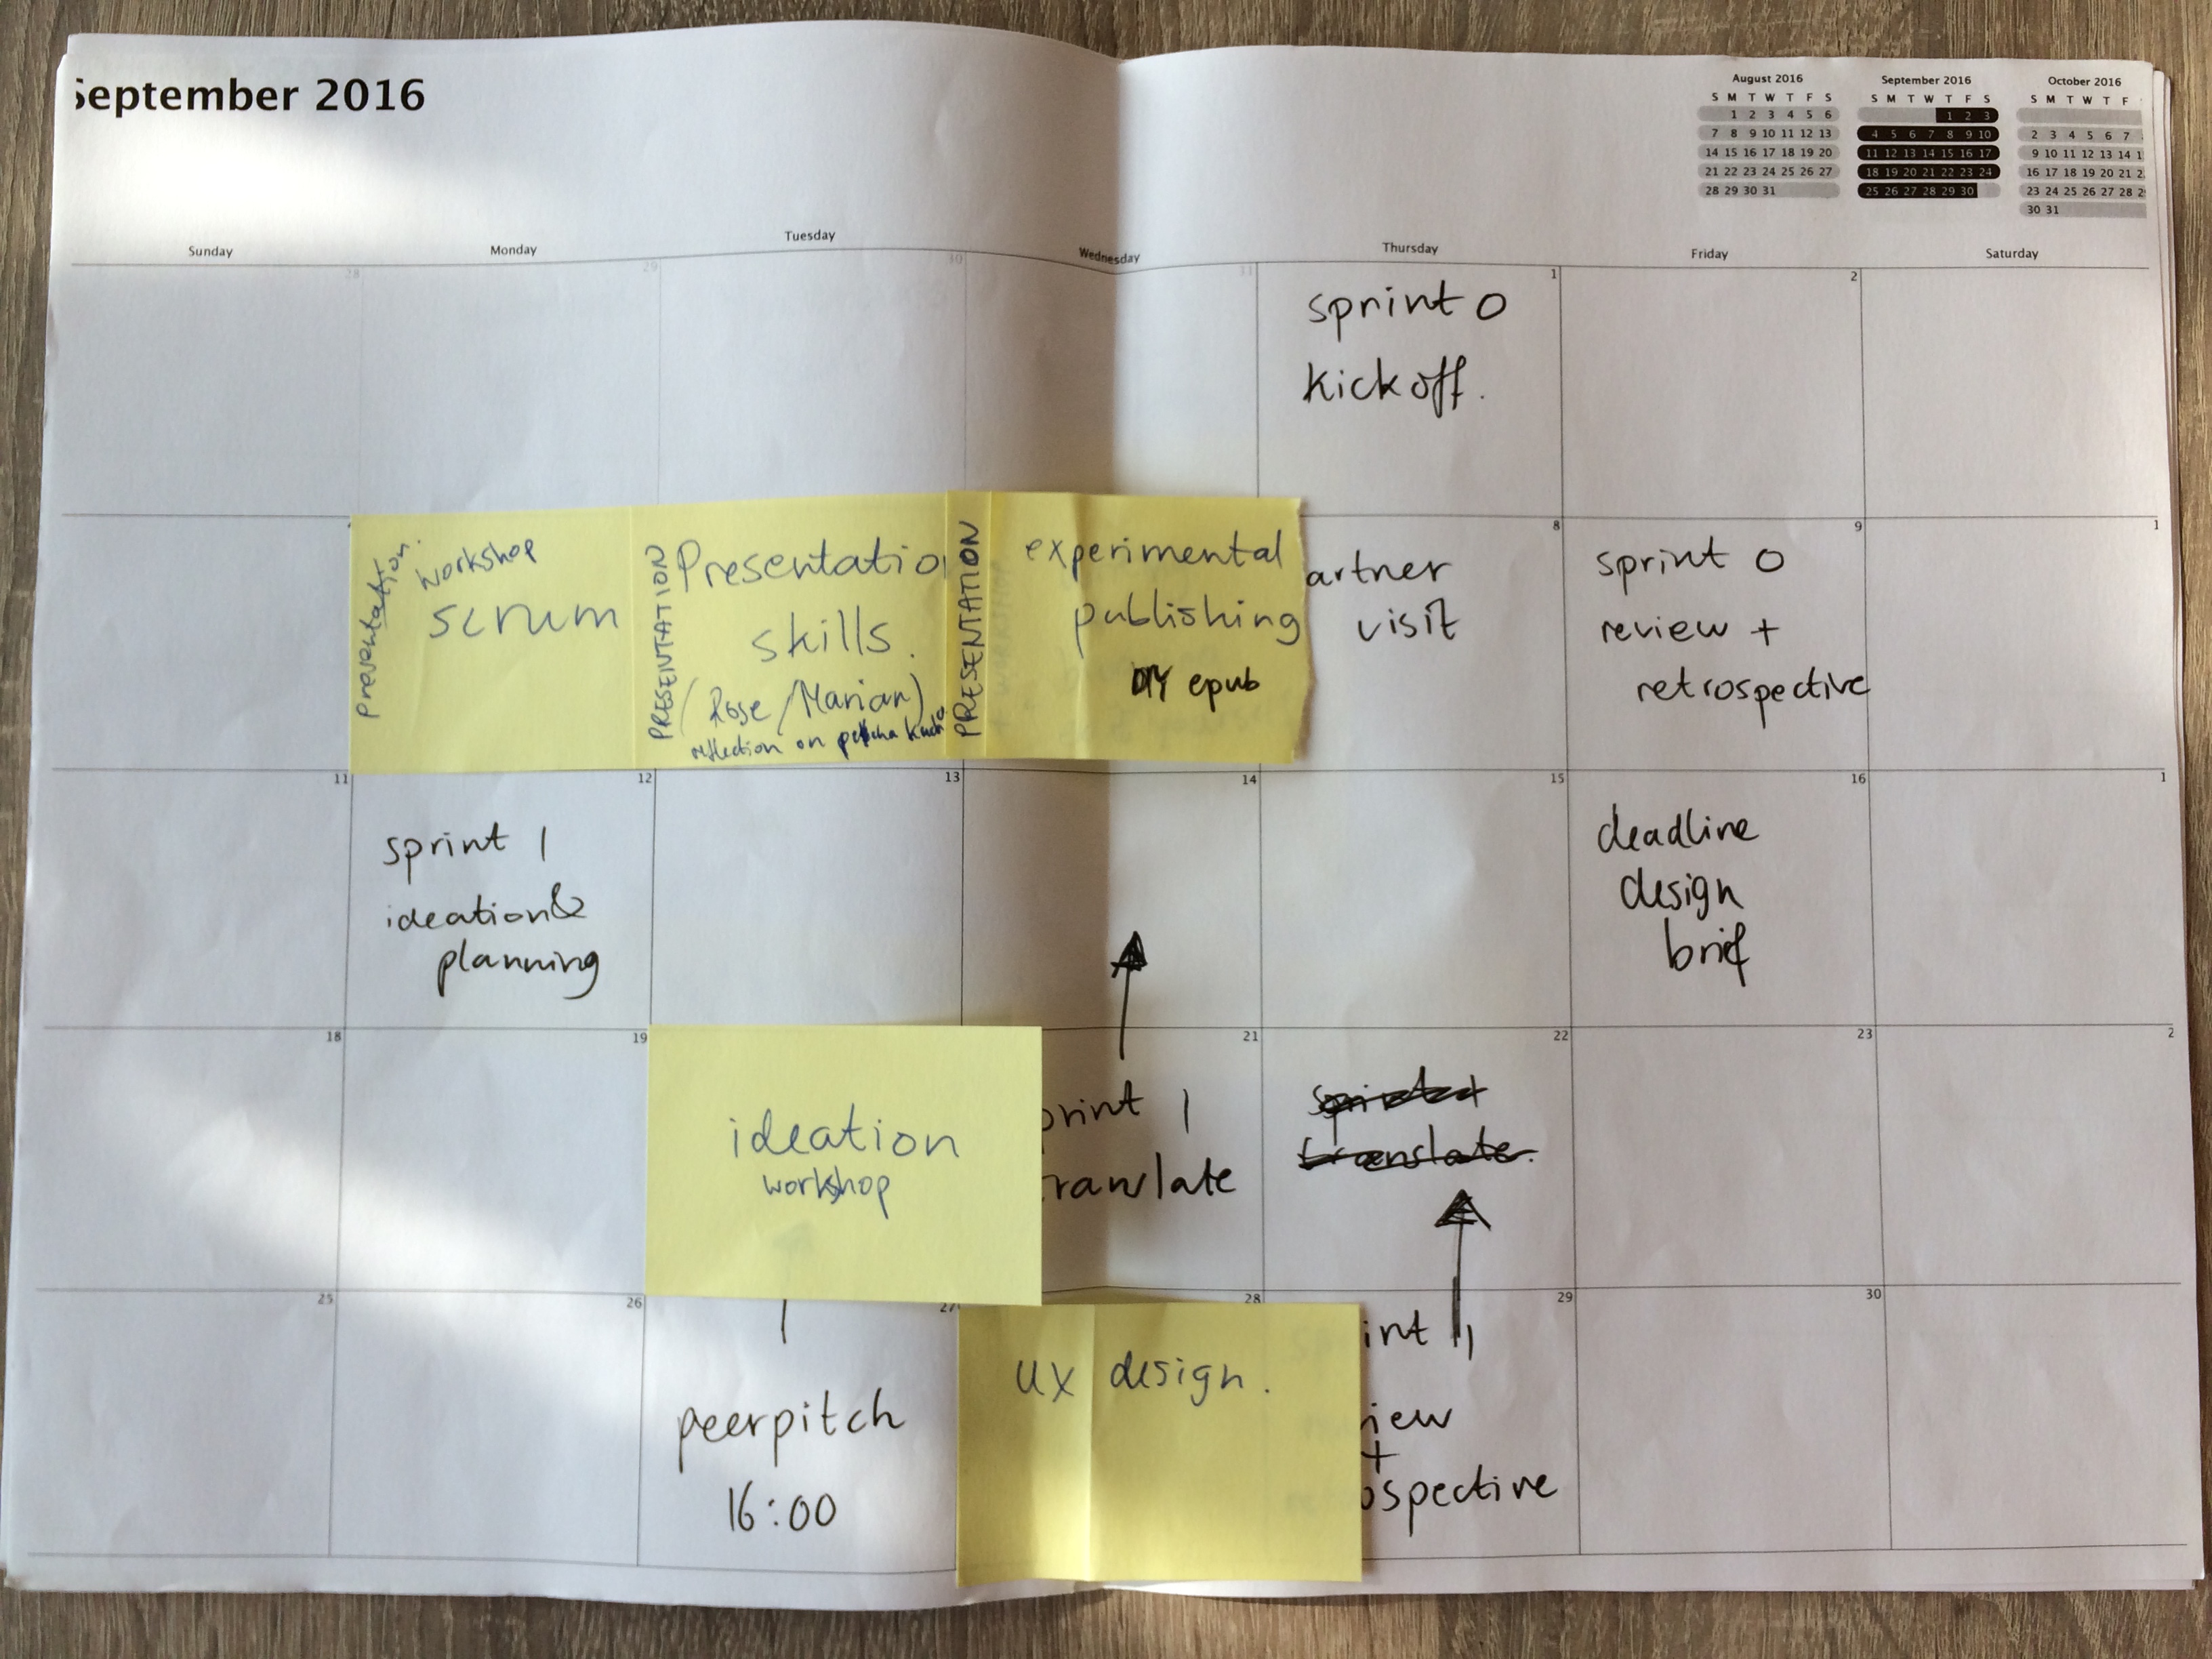 September 2016
August 2016
S M T W T F S
1 2 3 4 5 6
7 8 9 10 11 12 13
14 15 16 17 18 19 20
21 22 23 24 25 26 27
28 29 30 31
September 2016
S M T W T F S
1 2 3
4 5 6 7 8 9 10
11 12 13 14 15 16 17
18 19 20 21 22 23 24
25 26 27 28 29 30
October 2016
S M T W T F
2 3 4 5 6 7
9 10 11 12 13 14 1
16 17 18 19 20 21 2
23 24 25 26 27 28 2
30 31
Sunday Monday Tuesday Wednesday Thursday Friday Saturday
28 29 30 1 2
sprint 0
kick off.
8 9 1
presentation.
workshop
scrum
PRESENTATION
Presentatio
skills.
(Rose/Marian)
reflection on
PRESENTATION
experimental
publishing
DIY epub
artner
visit
sprint 0
review +
retrospective
11 12 13 14 15 16 1
sprint 1
ideation &
planning
deadline
design
brief
18 19 21 22 23 2
ideation
workshop
print 1
translate
sprint 1
translate.
25 26 27 28 29 30
peerpitch
16:00
ux design.
int 1
iew
+
ospective